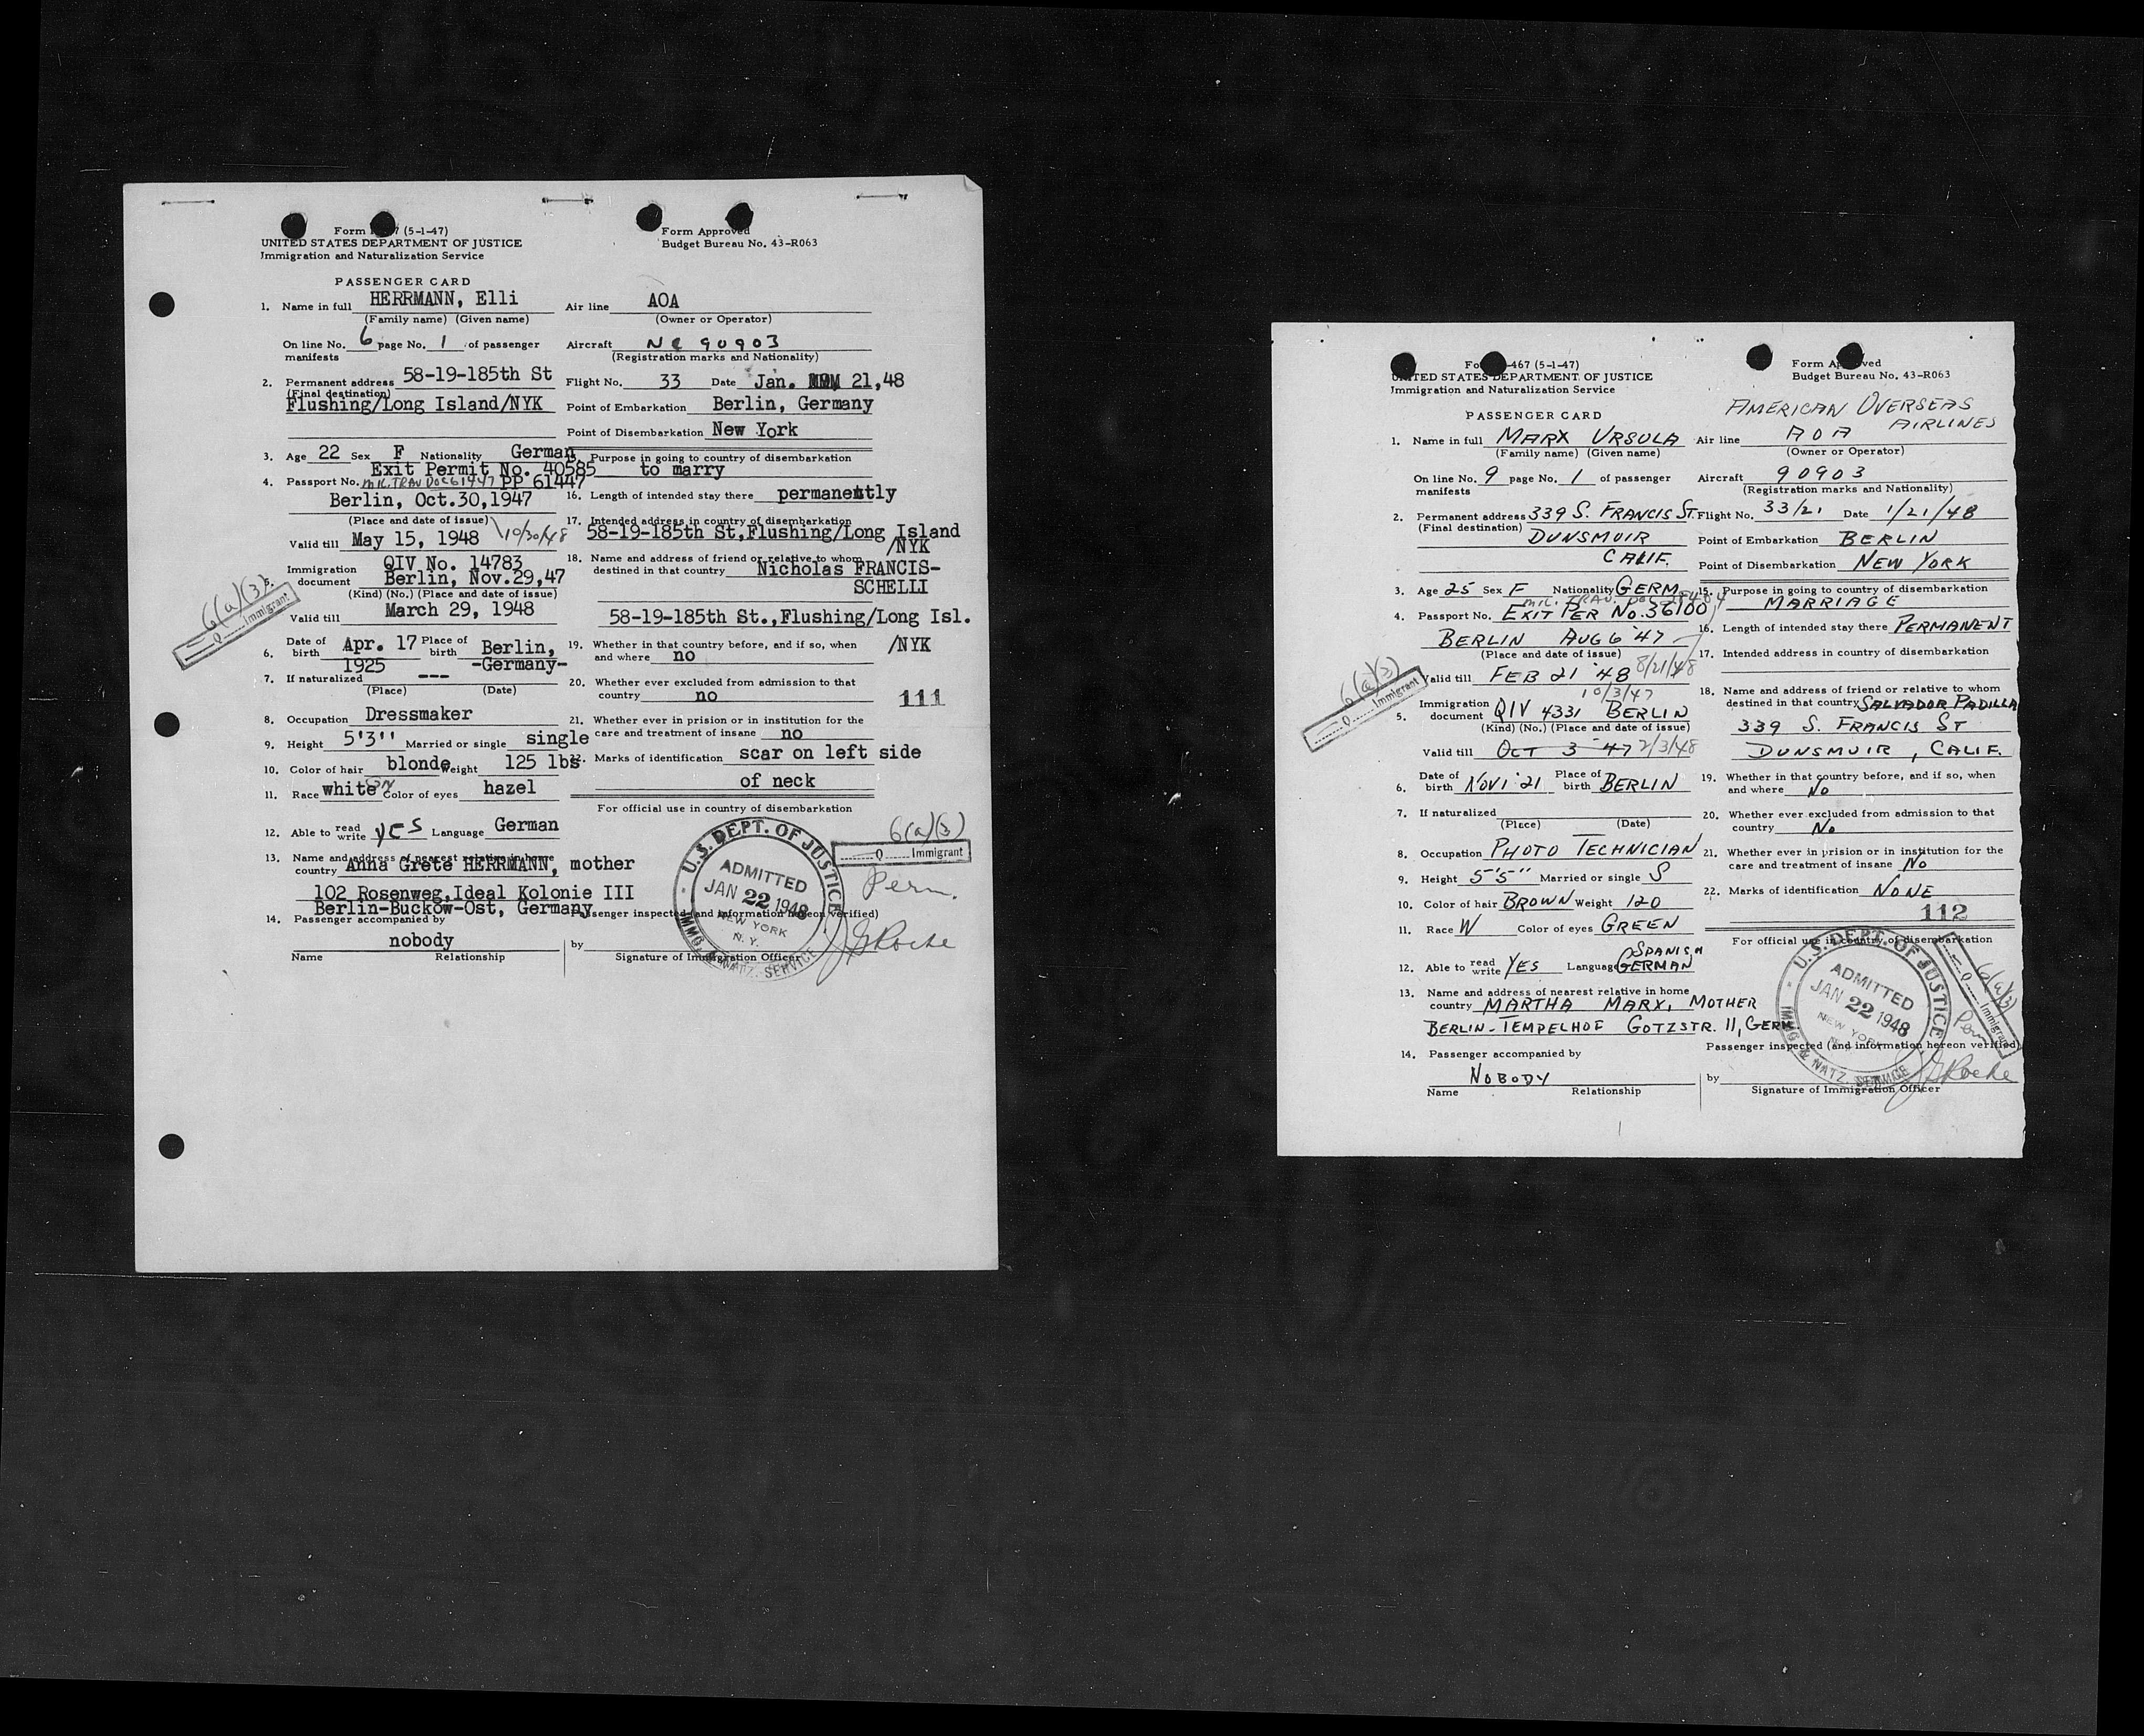 Form 7 (5-1-47)
UNITED STATES DEPARTMENT OF JUSTICE
Immigration and Naturalization Service
Form Approved
Budget Bureau No. 43-R063
PASSENGER CARD
1. Name in full HERRMANN, Elli
(Family name) (Given name)
On line No. 6 page No. 1 of passenger
manifests
2. Permanent address 58-19-185th St
(Final destination)
Flushing/Long Island/NYK
3. Age 22 Sex F Nationality German
Exit Permit No. 40585
4. Passport No. MIL. TRAV DOC 61447 PP 61447
Berlin, Oct.30,1947
(Place and date of issue)
Valid till May 15, 1948 10/30/48
QIV No. 14783
5. Immigration document Berlin, Nov.29,47
(Kind) (No.) (Place and date of issue)
Valid till March 29, 1948
6(a)(3)
Q Immigrant
6. Date of birth Apr. 17 1925 Place of birth Berlin, -Germany-
7. If naturalized ---
(Place) (Date)
8. Occupation Dressmaker
9. Height 5'3'' Married or single single
10. Color of hair blonde Weight 125 lbs
11. Race white Color of eyes hazel
12. Able to read write YES Language German
13. Name and address of nearest relative in home
country Anna Grete HERRMANN, mother
102 Rosenweg,Ideal Kolonie III
Berlin-Buckow-Ost, Germany
14. Passenger accompanied by
nobody
Name Relationship
Air line AOA
(Owner or Operator)
Aircraft NC 90903
(Registration marks and Nationality)
Flight No. 33 Date Jan. 21,48
Point of Embarkation Berlin, Germany
Point of Disembarkation New York
15. Purpose in going to country of disembarkation
to marry
16. Length of intended stay there permanently
17. Intended address in country of disembarkation
58-19-185th St,Flushing/Long Island
/NYK
18. Name and address of friend or relative to whom
destined in that country Nicholas FRANCIS-
SCHELLI
58-19-185th St.,Flushing/Long Isl.
/NYK
19. Whether in that country before, and if so, when
and where no
20. Whether ever excluded from admission to that
country no
111
21. Whether ever in prision or in institution for the
care and treatment of insane no
22. Marks of identification scar on left side
of neck
For official use in country of disembarkation
6(a)(3)
Q Immigrant
Perm.
U.S. DEPT. OF JUSTICE
ADMITTED
JAN 22 1948
NEW YORK
N. Y.
IMMG. & NATZ. SERVICE
Passenger inspected (and information hereon verified)
by Roche
Signature of Immigration Officer
Form 467 (5-1-47)
UNITED STATES DEPARTMENT OF JUSTICE
Immigration and Naturalization Service
Form Approved
Budget Bureau No. 43-R063
PASSENGER CARD
1. Name in full MARX URSULA
(Family name) (Given name)
On line No. 9 page No. 1 of passenger
manifests
2. Permanent address 339 S. FRANCIS ST.
(Final destination) DUNSMUIR
CALIF.
3. Age 25 Sex F Nationality GERM.
MIL. TRAV. DOC
4. Passport No. EXIT PER No. 36100
BERLIN AUG 6 '47
(Place and date of issue)
Valid till FEB 21 '48 8/21/48
10/3/47
5. Immigration document QIV 4331 BERLIN
(Kind) (No.) (Place and date of issue)
Valid till OCT 3 - 47 2/3/48
6(a)(3)
Q Immigrant
6. Date of birth NOV 1 '21 Place of birth BERLIN
7. If naturalized
(Place) (Date)
8. Occupation PHOTO TECHNICIAN
9. Height 5'5" Married or single S
10. Color of hair BROWN Weight 120
11. Race W Color of eyes GREEN
12. Able to read write YES Language SPANISH GERMAN
13. Name and address of nearest relative in home
country MARTHA MARX, MOTHER
BERLIN-TEMPELHOF GOTZSTR. 11, GERM.
14. Passenger accompanied by
NOBODY
Name Relationship
AMERICAN OVERSEAS
AIRLINES
Air line AOA
(Owner or Operator)
Aircraft 90903
(Registration marks and Nationality)
Flight No. 33/21 Date 1/21/48
Point of Embarkation BERLIN
Point of Disembarkation NEW YORK
15. Purpose in going to country of disembarkation
MARRIAGE
16. Length of intended stay there PERMANENT
17. Intended address in country of disembarkation
18. Name and address of friend or relative to whom
destined in that country SALVADOR PADILLA
339 S. FRANCIS ST
DUNSMUIR, CALIF.
19. Whether in that country before, and if so, when
and where No
20. Whether ever excluded from admission to that
country No
21. Whether ever in prision or in institution for the
care and treatment of insane No
22. Marks of identification NONE
112
For official use in country of disembarkation
U.S. DEPT. OF JUSTICE
ADMITTED
JAN 22 1948
NEW YORK
IMMG. & NATZ. SERVICE
6(a)(3)
Q Immigrant
Perm
Passenger inspected (and information hereon verified)
by Roche
Signature of Immigration Officer